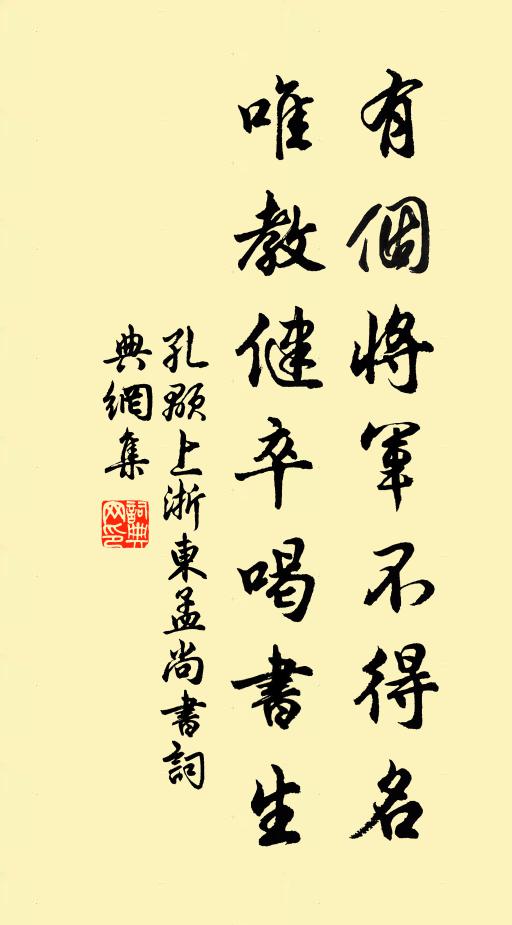 有個將軍不得名
唯教健卒喝書生
孔顒上浙東孟尚書詞
典網集
詞典
网印